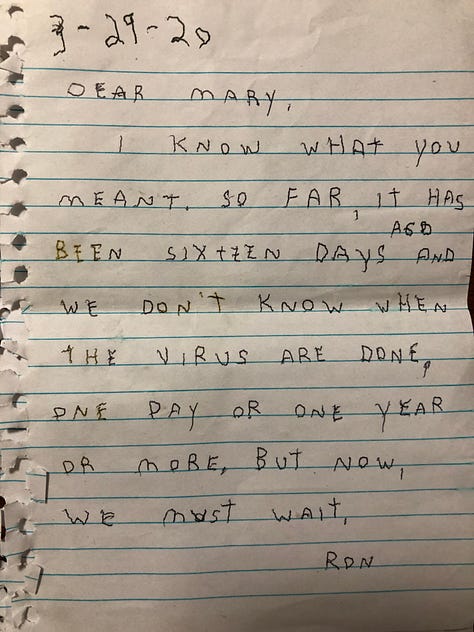 3-29-20
DEAR MARY,
I KNOW WHAT YOU
MEANT. SO FAR, IT HAS
AGO
BEEN SIXTEEN DAYS AND
WE DON'T KNOW WHEN
THE VIRUS ARE DONE,
ONE DAY OR ONE YEAR
OR MORE, BUT NOW,
WE MUST WAIT.
RON